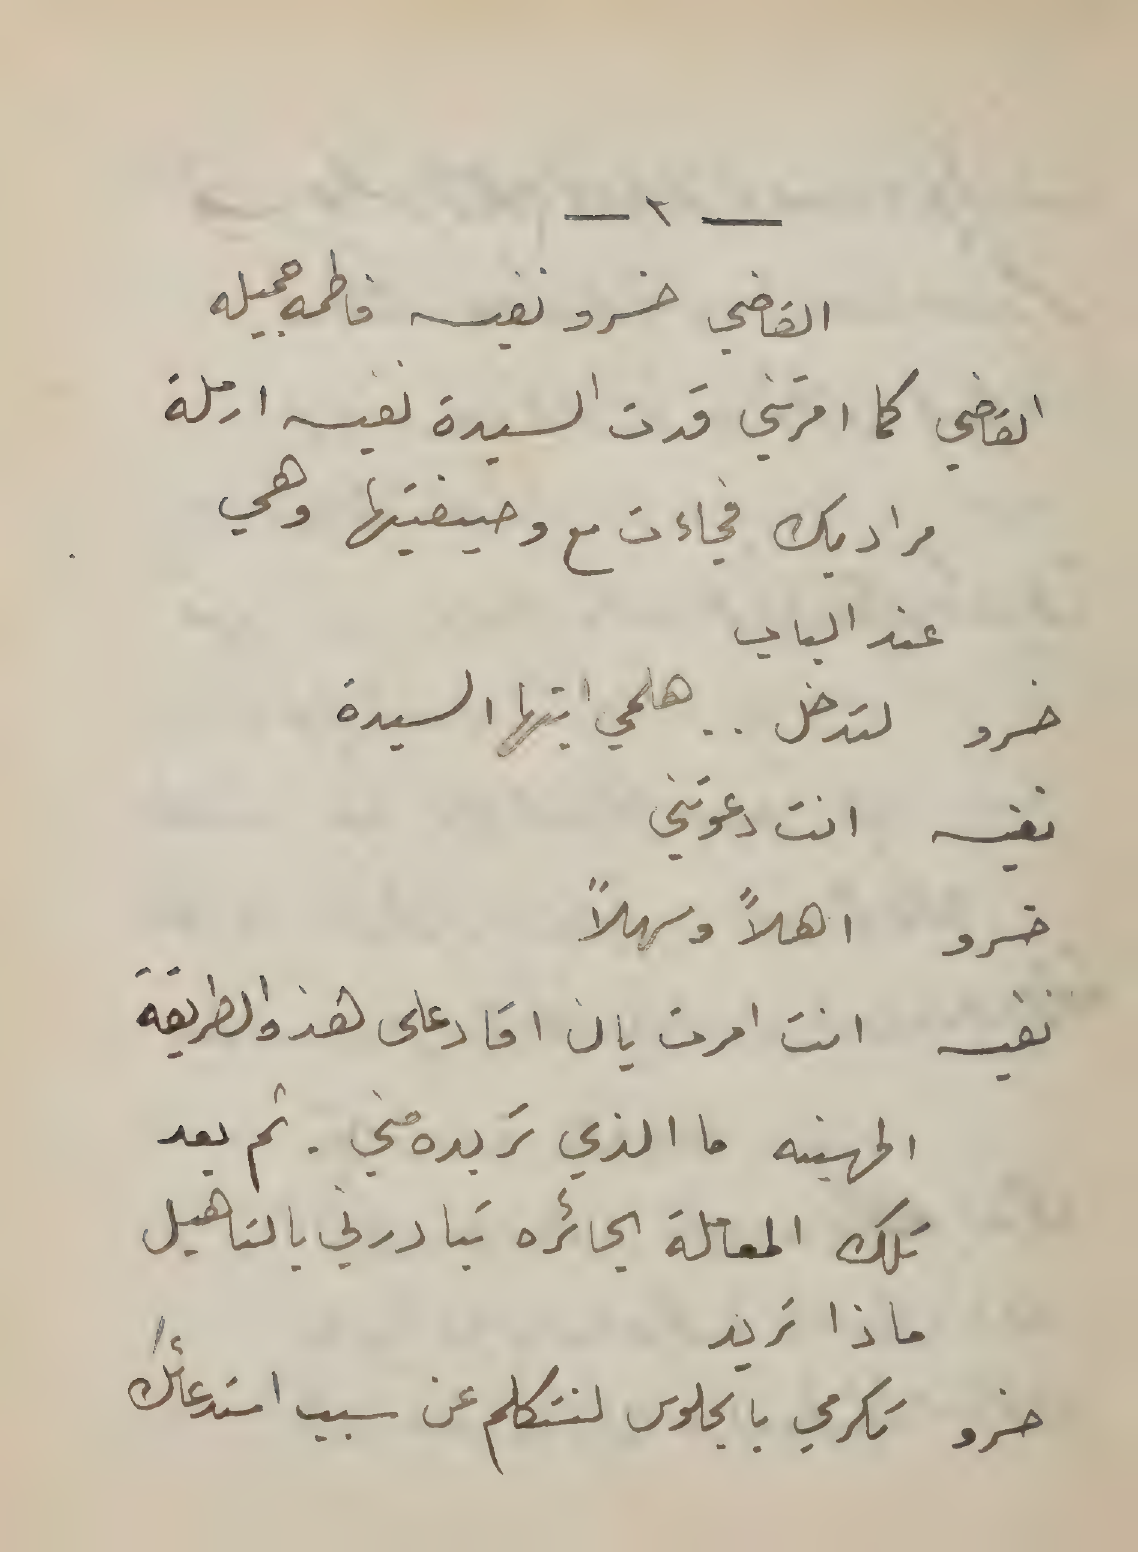 — ٢ —
القاضي خسرو نفيسه فاطمه جميله
القاضي كما امرتني قدت السيدة نفيسه ارملة
مراد بك فجاءت مع وصيفتيها وهي
عند الباب
خسرو لتدخل .. هلمي ايتها السيدة
نفيسه انت دعوتني
خسرو اهلاً وسهلاً
نفيسه انت امرت بان اقاد على هذه الطريقة
المهينه ما الذي تريده مني . ثم بعد
تلك المعاملة الجائره تبادرني بالتاهيل
ماذا تريد
خسرو تكرمي بالجلوس لنتكلم عن سبب استدعائك